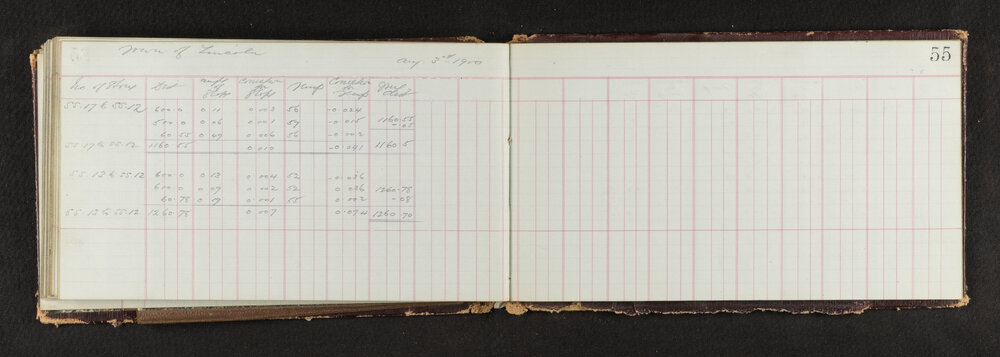 Town of Lincoln
Aug 3rd 1900
55
No. of Stones Dist Angle of Slope Correction for Slope Temp Correction for Temp True Dist
55.17 to 55.12 600.0 0.11 0.003 56 -0.024
500.0 0.06 0.001 59 -0.015 1160.55
60.55 0.49 0.006 56 -0.002 -.05
55.17 to 55.12 1160.55 0.010 -0.041 1160.5
55.13 to 55.12 600.0 0.13 0.004 52 -0.036
600.0 0.09 0.002 52 0.036 1260.78
60.78 0.19 0.001 55 0.002 -.08
55.13 to 55.12 1260.78 0.007 0.074 1260.70